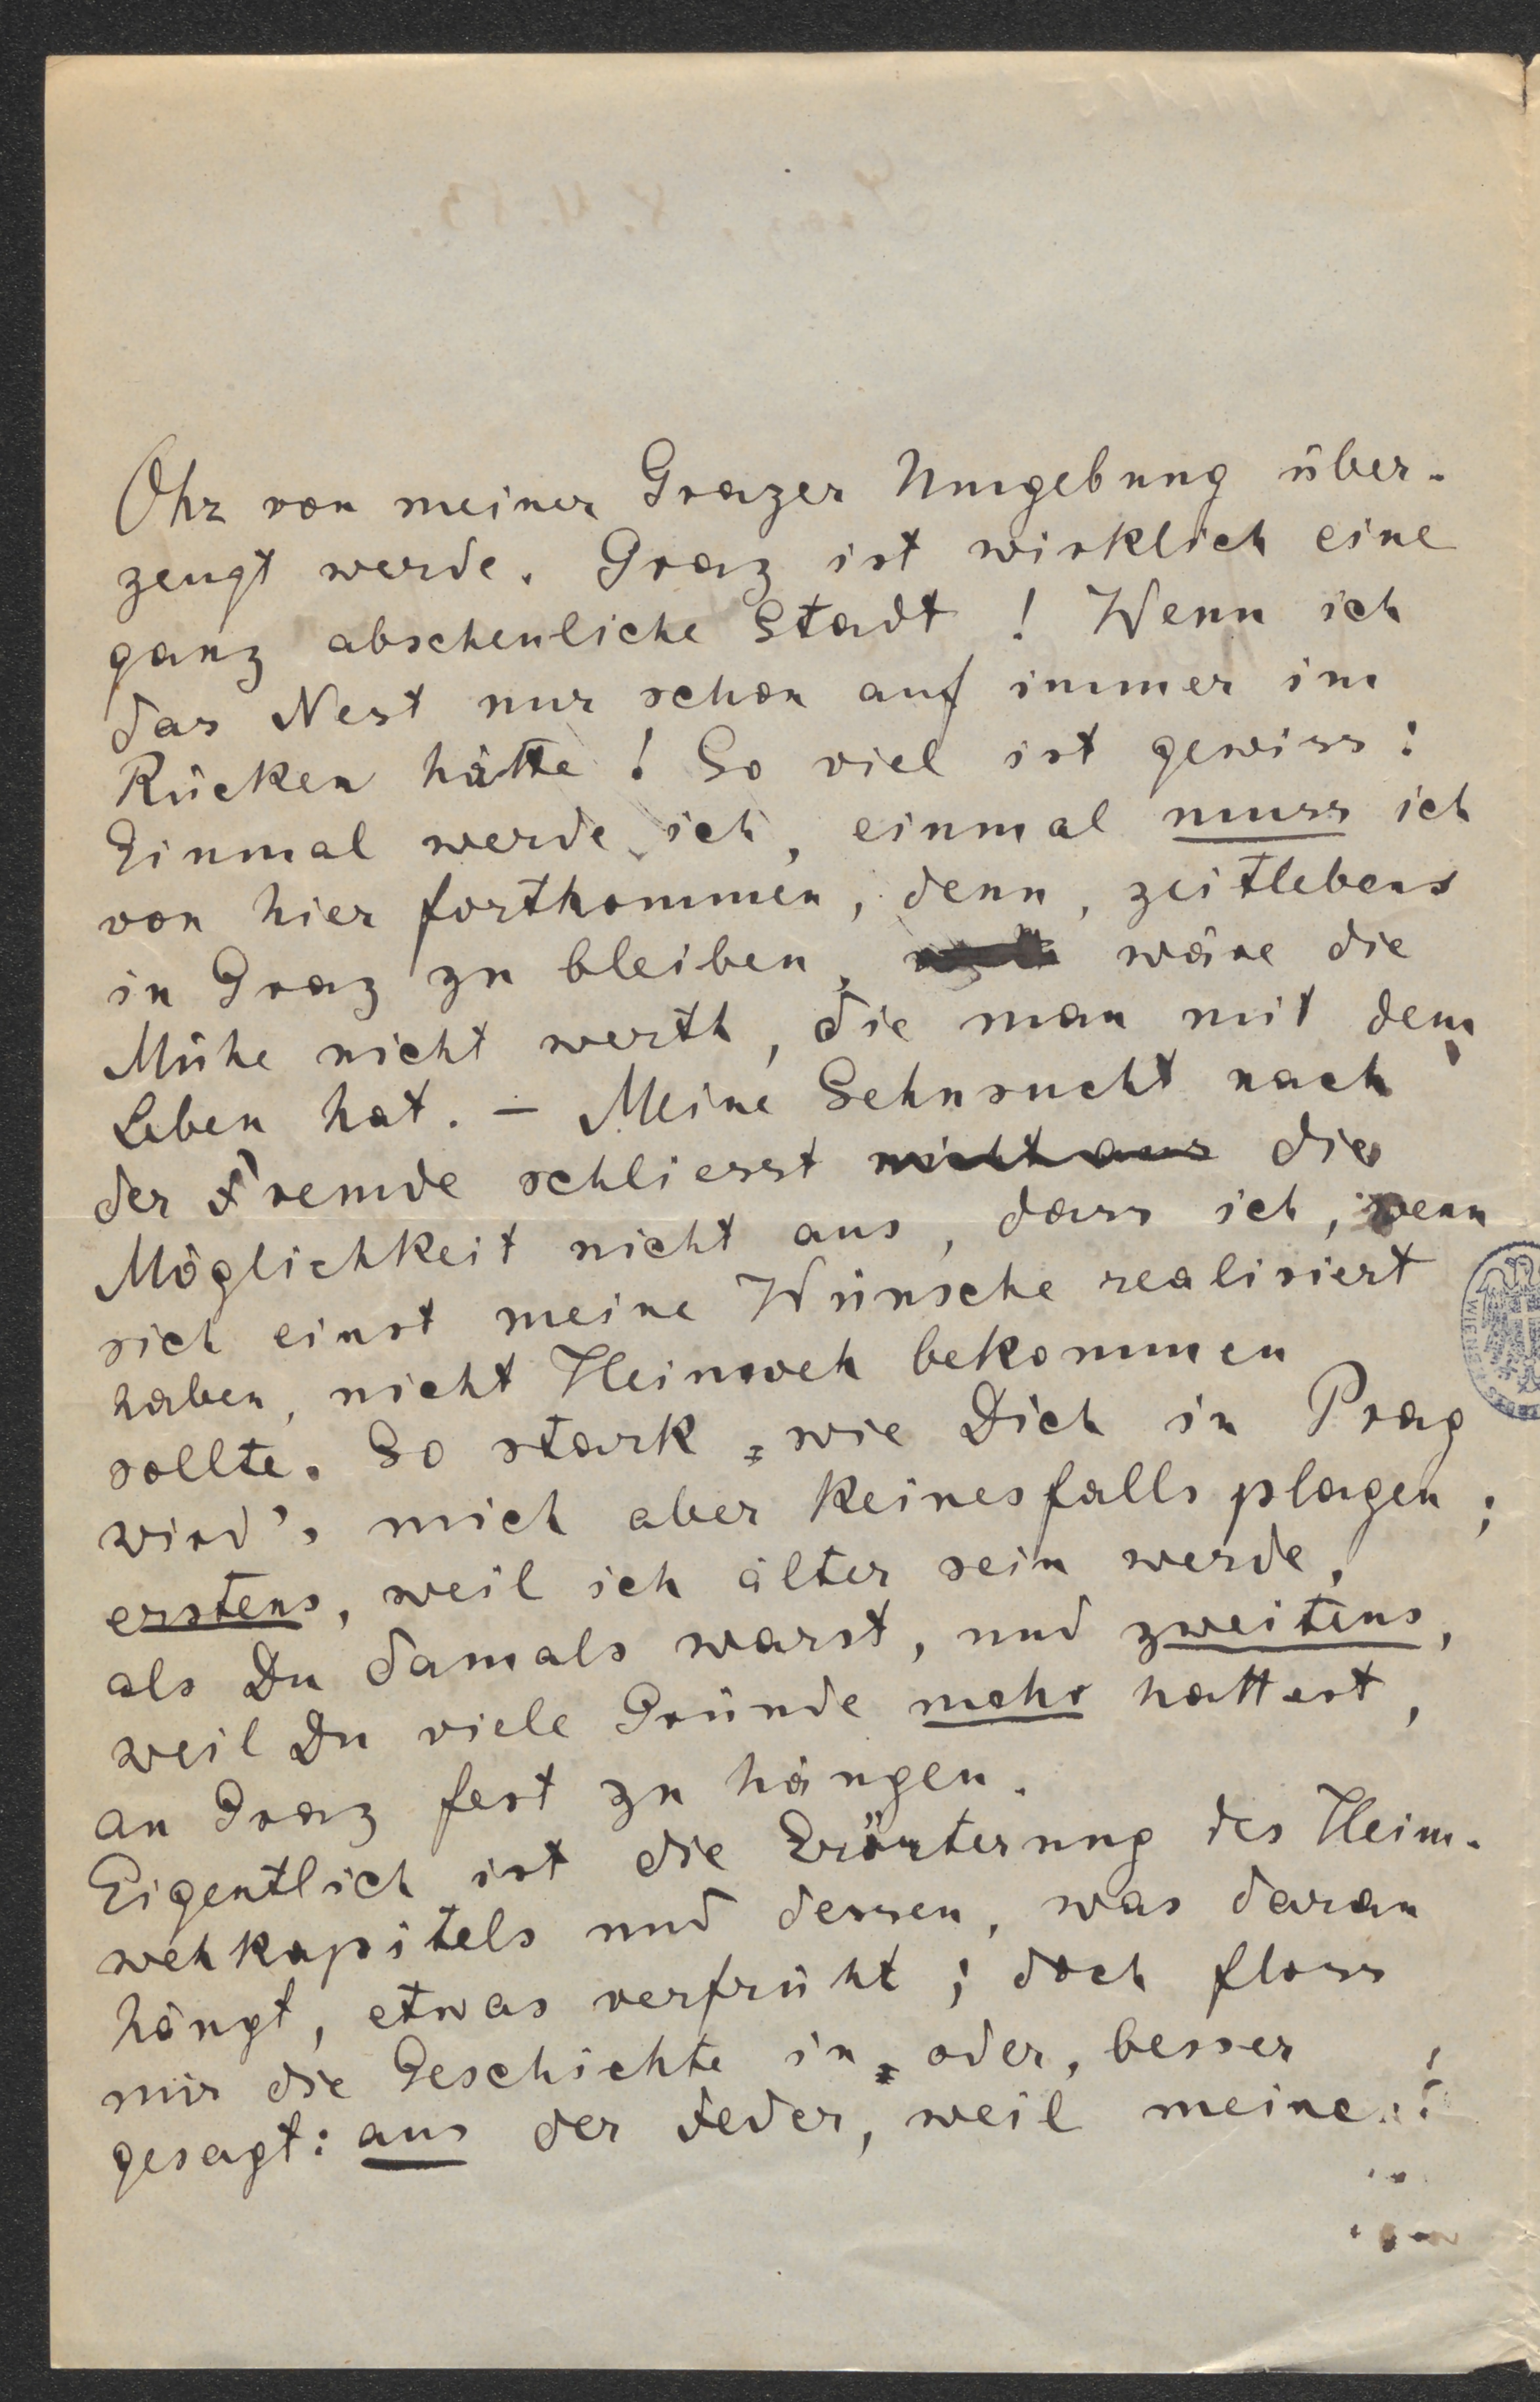 Ohr von meiner Grazer Umgebung über-
zeugt werde. Graz ist wirklich eine
ganz abscheuliche Stadt! Wenn ich
das Nest nur schon auf immer im
Rücken hätte! So viel ist gewiss:
Einmal werde ich, einmal muss ich
von hier fortkommen, denn, zeitlebens
in Graz zu bleiben, wäre die
Mühe nicht werth, die man mit dem
Leben hat. – Meine Sehnsucht nach
der Fremde schliesst nicht aus die
Möglichkeit nicht aus, dass ich, wenn
sich einst meine Wünsche realisiert
haben, nicht Heimweh bekommen
sollte. So stark wie Dich in Prag
wird's mich aber keinesfalls plagen;
erstens, weil ich älter sein werde,
als Du damals warst, und zweitens,
weil Du viele Gründe mehr hattest,
an Graz fest zu hängen.
Eigentlich ist die Erörterung des Heim-
wehkapitels und dessen, was daran
hängt, etwas verfrüht; doch floss
mir die Geschichte in, oder, besser
gesagt: aus der Feder, weil meine
WIENER